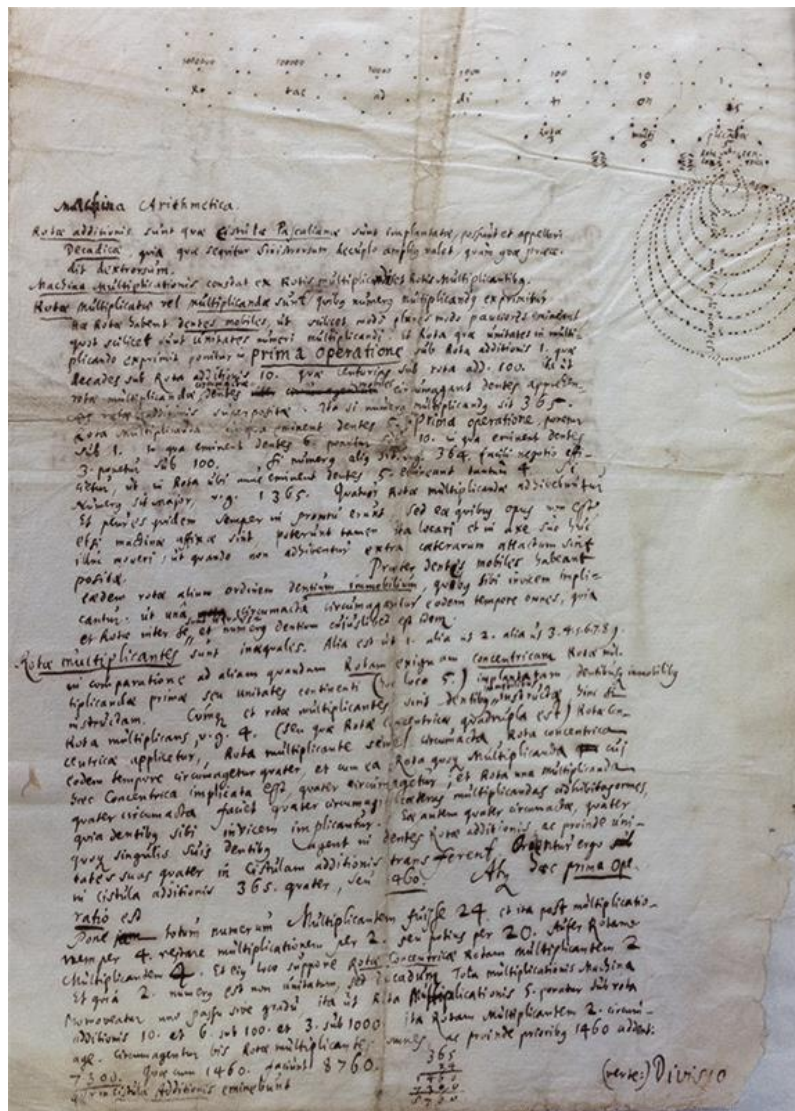 1000000 100000 10000 1000 100 10 1
Ro tae ad di ti on
Rota multi plicanda
3 6 5
Machina Arithmetica.
Rotae additionis sunt quae Cistulae Pascalianae sunt implantatae, possunt et appellari
Decadicae, quia quae sequitur sinistrorsum decuplo amplius valet, quam quae praece-
dit dextrorsum.
Machina Multiplicationis constat ex Rotis multiplicandis et Rotis Multiplicantibus.
Rotae Multiplicatae vel multiplicandae sunt, quibus numerus multiplicandus exprimitur
Hae Rotae habent dentes mobiles, ut scilicet modo plures modo pauciores emineant
quot scilicet sunt unitates numeri multiplicandi. Et Rota quae unitates in multi-
plicando exprimit ponitur in prima operatione sub Rota additionis 1. quae
decades sub Rota additionis 10. quae centurias sub rota add. 100. ut
rotae multiplicandae dentes circumagant dentes
rotae additionis superpositae. Ita si numerus multiplicandus sit 365.
Rota Multiplicanda in qua eminent dentes 5. prima operatione, ponetur
sub 1. in qua eminent dentes 6. ponetur sub 10. in qua eminent dentes
3. ponetur sub 100. Si numerus alius sit v.g. 364. facili negotio effi-
cietur, ut in Rota ubi nunc eminent dentes 5. emineant tantum 4. Si
Numerus sit major, v.g. 1365. Quatuor Rotae multiplicandae adhibebuntur
Et plures quidem semper in promtu erunt, sed eae quibus opus non est,
etsi machinae affixae sint, poterunt tamen ita locari et in axe suo huc
illuc moveri, ut quando non adhibentur extra caeterarum attactum sint
positae. Praeter dentes mobiles habeant
eaedem rotae alium ordinem dentium immobilium, quibus sibi invicem impli-
cantur. ut una circumacta circumagantur eodem tempore omnes, quia
et Rotae inter se et numerus dentium cujuslibet est idem
Rotae multiplicantes sunt inaequales. Alia est ut 1. alia ut 2. alia ut 3.4.5.6.7.8.9.
in comparatione ad aliam quandam Rotam exiguam concentricam Rotae mul-
tiplicandae primae seu unitates continenti (hoc loco 5.) implantatam, dentibus immobilibus
instructam. Cumque et rotae multiplicantes sint dentibus instructae hinc si
Rota multiplicans, v.g. 4. (seu quae Rotae Concentricae quadrupla est) Rotae Con-
centricae applicetur, Rota multiplicante semel circumacta Rota concentrica
eodem tempore circumagetur quater, et cum ea Rota quoque Multiplicanda cui
haec Concentrica implicata est, quater circumagetur, et Rota una multiplicanda
quater circumacta faciet quater circumagi caeteras multiplicandas adhibitas omnes,
quia dentibus sibi invicem implicantur. Eae autem quater circumactae, quater
quoque singulis suis dentibus agent in dentes Rotae additionis ac proinde uni-
tates suas quater in Cistulam additionis transferent. Orientur ergo sub
in cistula additionis 365. quater, seu 1460. Atque haec prima Ope-
ratio est
Pone totum numerum Multiplicantem fuisse 24. et ita post multiplicatio-
nem per 4. restare multiplicationem per 2. seu potius per 20. Aufer Rotam
Multiplicantem 4. Et ejus loco suppone Rotae Concentricae Rotam multiplicantem 2
Et quia 2. numerus est non unitatum, sed decadum Tota multiplicationis Machina
promoveatur uno passu sive gradu ita ut Rota Multiplicationis 5. ponatur sub rota
additionis 10. et 6. sub 100. et 3. sub 1000 ita Rotam Multiplicantem 2. circum-
age. Circumagentur bis Rotae multiplicantes omnes ac proinde prioribus 1460 addent:
7300. Quae cum 1460. faciunt 8760.
quae in Cistula Additionis eminebunt
365
24
1460
7300
8760
(verte:) Divisio